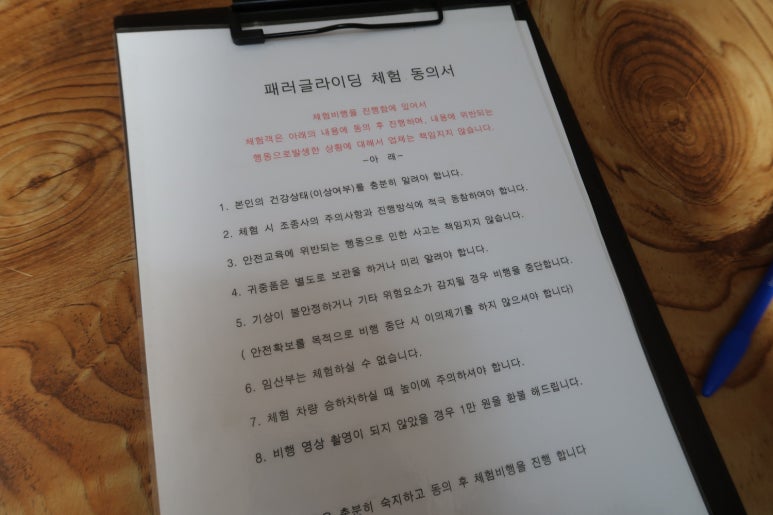 패러글라이딩 체험 동의서
체험비행을 진행함에 있어서
체험객은 아래의 내용에 동의 후 진행하며, 내용에 위반되는
행동으로발생한 상황에 대해서 업체는 책임지지 않습니다.
-아 래-
1. 본인의 건강상태(이상여부)를 충분히 말려야 합니다.
2. 체험 시 조종사의 주의사항과 진행방식에 적극 동참하여야 합니다.
3. 안전교육에 위반되는 행동으로 인한 사고는 책임지지 않습니다.
4. 귀중품은 별도로 보관을 하거나 미리 말려야 합니다.
5. 기상이 불안정하거나 기타 위험요소가 감지될 경우 비행을 중단합니다.
( 안전확보를 목적으로 비행 중단 시 이의제기를 하지 않으셔야 합니다)
6. 임산부는 체험하실 수 없습니다.
7. 체험 차량 승하차하실 때 높이에 주의하셔야 합니다.
8. 비행 영상 촬영이 되지 않았을 경우 1만 원을 환불 해드립니다.
충분히 숙지하고 동의 후 체험비행을 진행 합니다